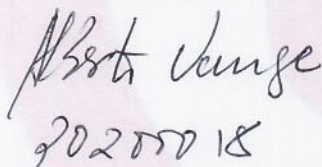 Alberto Vunge
20200018